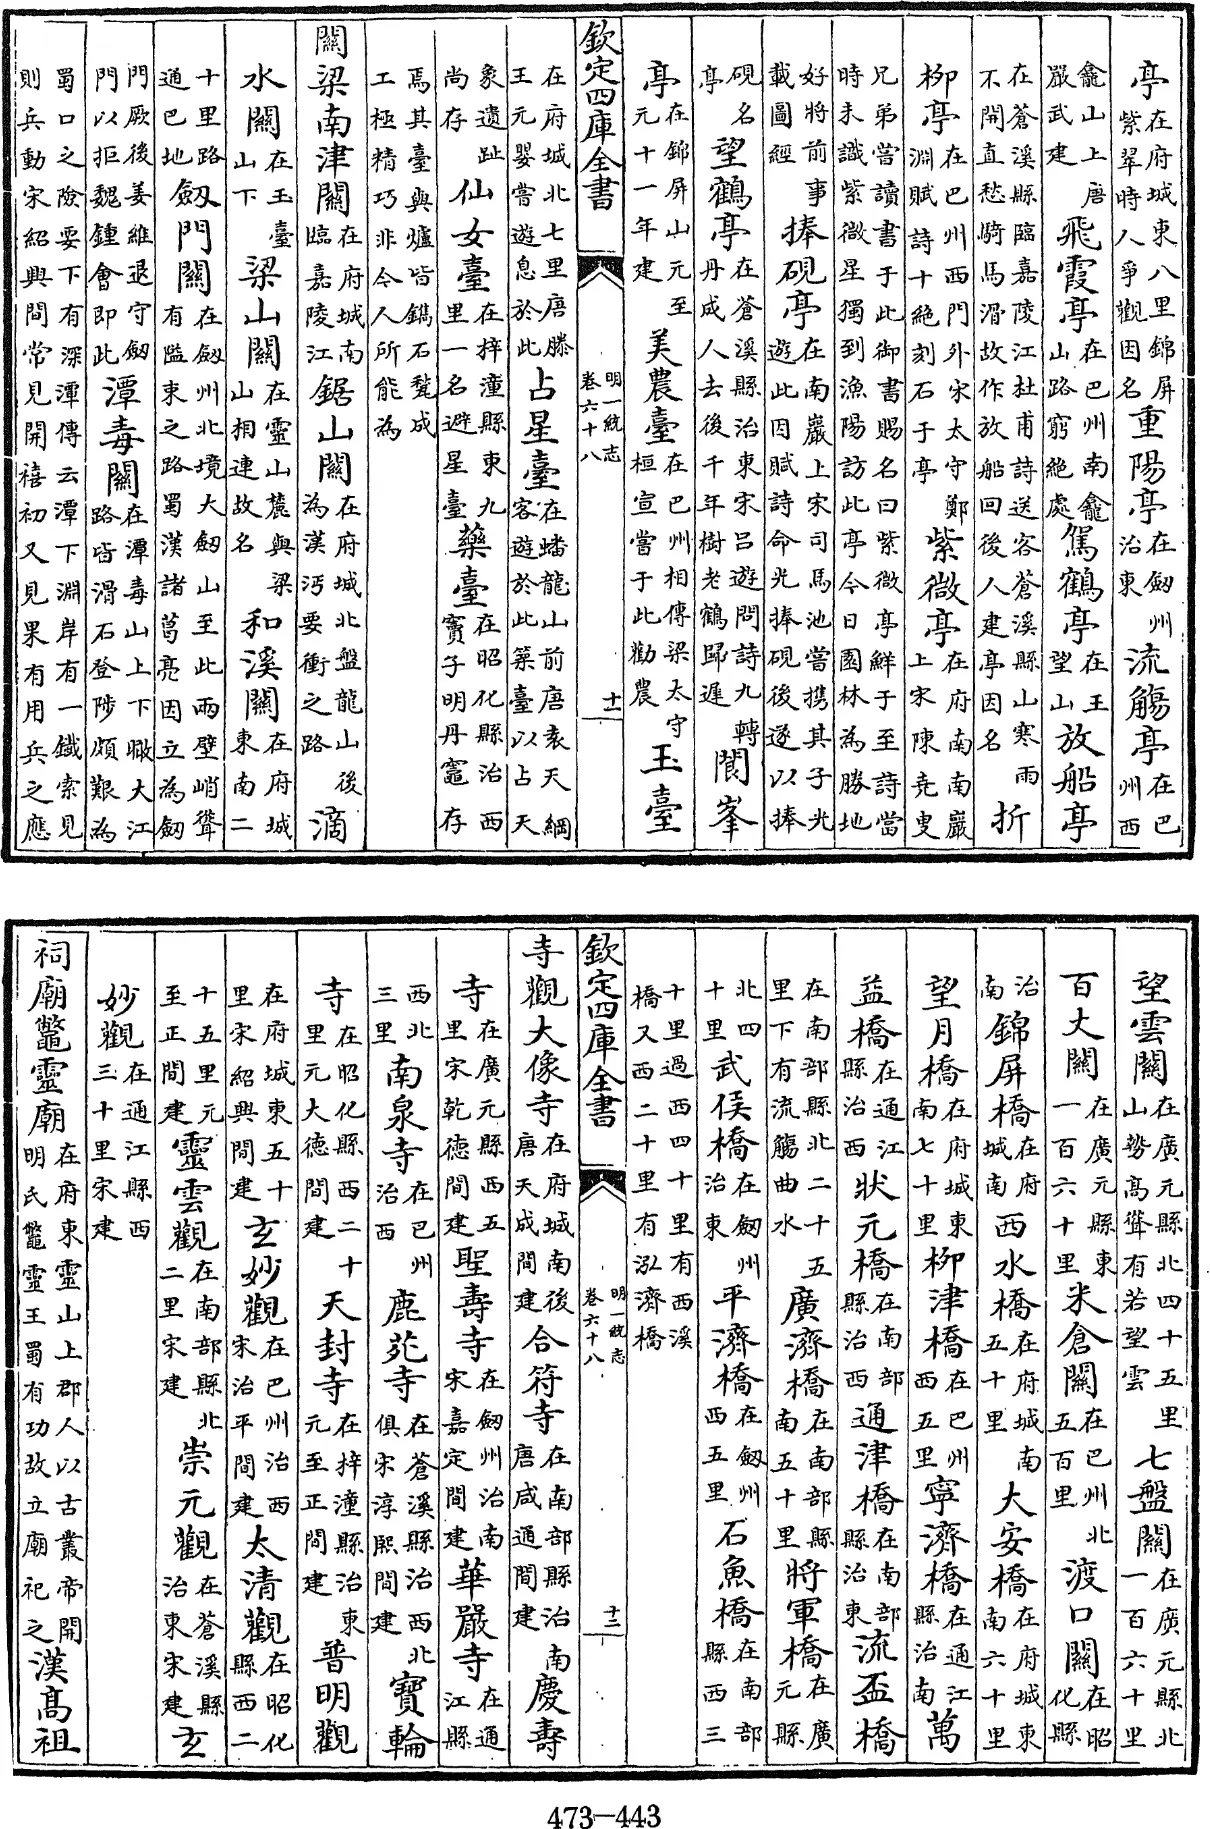 亭在府城東八里錦屏紫翠時人爭觀因名重陽亭在劔州治東流觴亭在巴州西
龕山上唐嚴武建飛霞亭在巴州南龕山路窮絕處駕鶴亭在王望山放船亭
在蒼溪縣臨嘉陵江杜甫詩送客蒼溪縣山寒雨不開直愁騎馬滑故作放船回後人建亭因名折
柳亭在巴州西門外宋太守鄭淵賦詩十絕刻石于亭紫微亭在府南南巖上宋陳堯叟
兄弟嘗讀書于此御書賜名曰紫微亭鮮于至詩當時未識紫微星獨到漁陽訪此亭今日園林為勝地
好將前事載圖經捧硯亭在南巖上宋司馬池嘗携其子光遊此因賦詩命光捧硯後遂以捧
硯名亭望鶴亭在蒼溪縣治東宋呂遊問詩九轉丹成人去後千年樹老鶴歸遲閬峯
亭在錦屏山元至元十一年建美農臺在巴州相傳梁太守桓宣嘗于此勸農玉臺
欽定四庫全書 明一統志 卷六十八 十二
在府城北七里唐滕王元嬰嘗遊息於此占星臺在蟠龍山前唐袁天綱客遊於此築臺以占天
象遺趾尚存仙女臺在梓潼縣東九里一名避星臺藥臺在昭化縣治西竇子明丹竈存
焉其臺與爐皆鐫石甃成工極精巧非今人所能為
關梁南津關在府城南臨嘉陵江鋸山關在府城北盤龍山後為漢沔要衝之路滴
水關在玉臺山下梁山關在靈山麓與梁山相連故名和溪關在府城東南二
十里路通巴地劔門關在劔州北境大劔山至此兩壁峭聳有隘束之路蜀漢諸葛亮因立為劔
門厥後姜維退守劔門以拒魏鍾會即此潭毒關在潭毒山上下瞰大江路皆滑石登陟頗艱為
蜀口之險要下有深潭傳云潭下淵岸有一鐵索見則兵動宋紹興間常見開禧初又見果有用兵之應
望雲關在廣元縣北四十五里山勢高聳有若望雲七盤關在廣元縣北一百六十里
百丈關在廣元縣東一百六十里米倉關在巴州北五百里渡口關在昭化縣
治南錦屏橋在府城南西水橋在府城南五十里大安橋在府城東南六十里
望月橋在府城東南七十里柳津橋在巴州西五里寧濟橋在通江縣治南萬
益橋在通江縣治西狀元橋在南部縣治西通津橋在南部縣治東流盃橋
在南部縣北二十五里下有流觴曲水廣濟橋在南部縣南五十里將軍橋在廣元縣
北四十里武侯橋在劔州治東平濟橋在劔州西五里石魚橋在南部縣西三
十里過西四十里有西溪橋又西二十里有泓濟橋
欽定四庫全書 明一統志 卷六十八 十三
寺觀大像寺在府城南後唐天成間建合符寺在南部縣治南唐咸通間建慶壽
寺在廣元縣西五里宋乾德間建聖壽寺在劔州治南宋嘉定間建華嚴寺在通江縣
西北三里南泉寺在巴州治西鹿苑寺在蒼溪縣治西北俱宋淳熙間建寶輪
寺在昭化縣西二十里元大德間建天封寺在梓潼縣治東元至正間建普明觀
在府城東五十里宋紹興間建玄妙觀在巴州治西宋治平間建太清觀在昭化縣西二
十五里元至正間建靈雲觀在南部縣北二里宋建崇元觀在蒼溪縣治東宋建玄
妙觀在通江縣西三十里宋建
祠廟鼈靈廟在府東靈山上郡人以古叢帝開明氏鼈靈王蜀有功故立廟祀之漢高祖
473-443